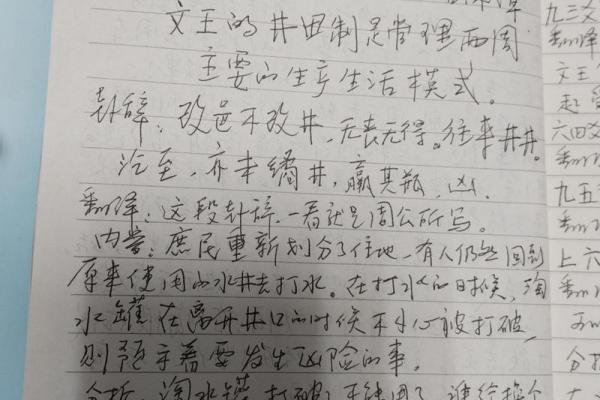 文王的井田制是管理西周
主要的生产生活模式。
卦辞：改邑不改井，无丧无得。往来井井。
汔至，亦未繘井，羸其瓶，凶。
翻译：这段卦辞，一看就是周公所写。
内容：庶民重新划分了住地，有人仍然回到
原来使用的水井去打水。在打水的时候，陶
水罐在离开井口的时候不小心被打破，
则预示着要发生凶险的事。
分析：陶水罐打破了不能用了，谁给换个
九三爻
翻译
文王
起
六四爻
翻译
九五
翻
上六
翻译
分析